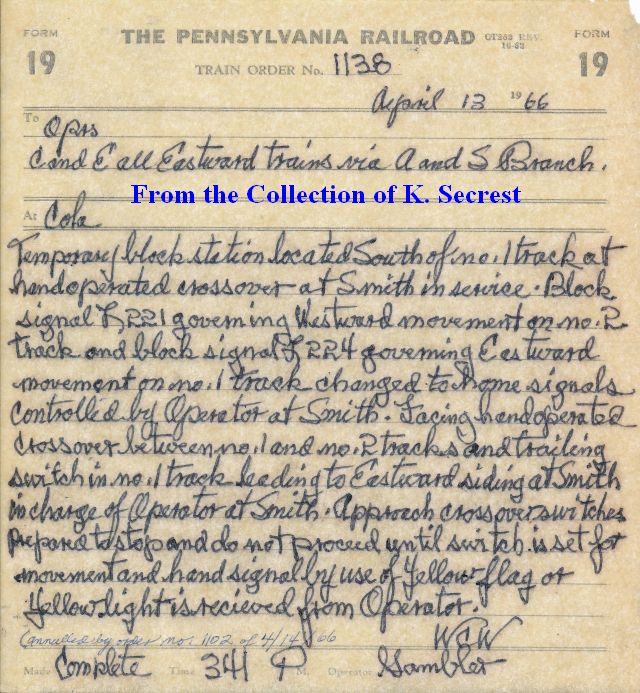 FORM 19 THE PENNSYLVANIA RAILROAD CT263 REV. 10-62 FORM 19
TRAIN ORDER No. 1138
April 13 1966
To Oprs
C and E all Eastward trains via A and S Branch.
From the Collection of K. Secrest
At Cola
Temporary block station located South of no. 1 track at
handoperated crossover at Smith in service. Block
signal L221 governing Westward movement on no. 2
track and block signal L224 governing Eastward
movement on no. 1 track changed to home signals
controlled by Operator at Smith. Facing handoperated
crossover between no. 1 and no. 2 tracks and trailing
switch in no. 1 track leading to Eastward siding at Smith
in charge of Operator at Smith. Approach crossover switches
prepared to stop and do not proceed until switch is set for
movement and hand signal by use of Yellow flag or
Yellow light is recieved from Operator.
(annulled by order no. 1102 of 4/14/66
WCW
Made Complete Time 341 P M. Operator Gambler